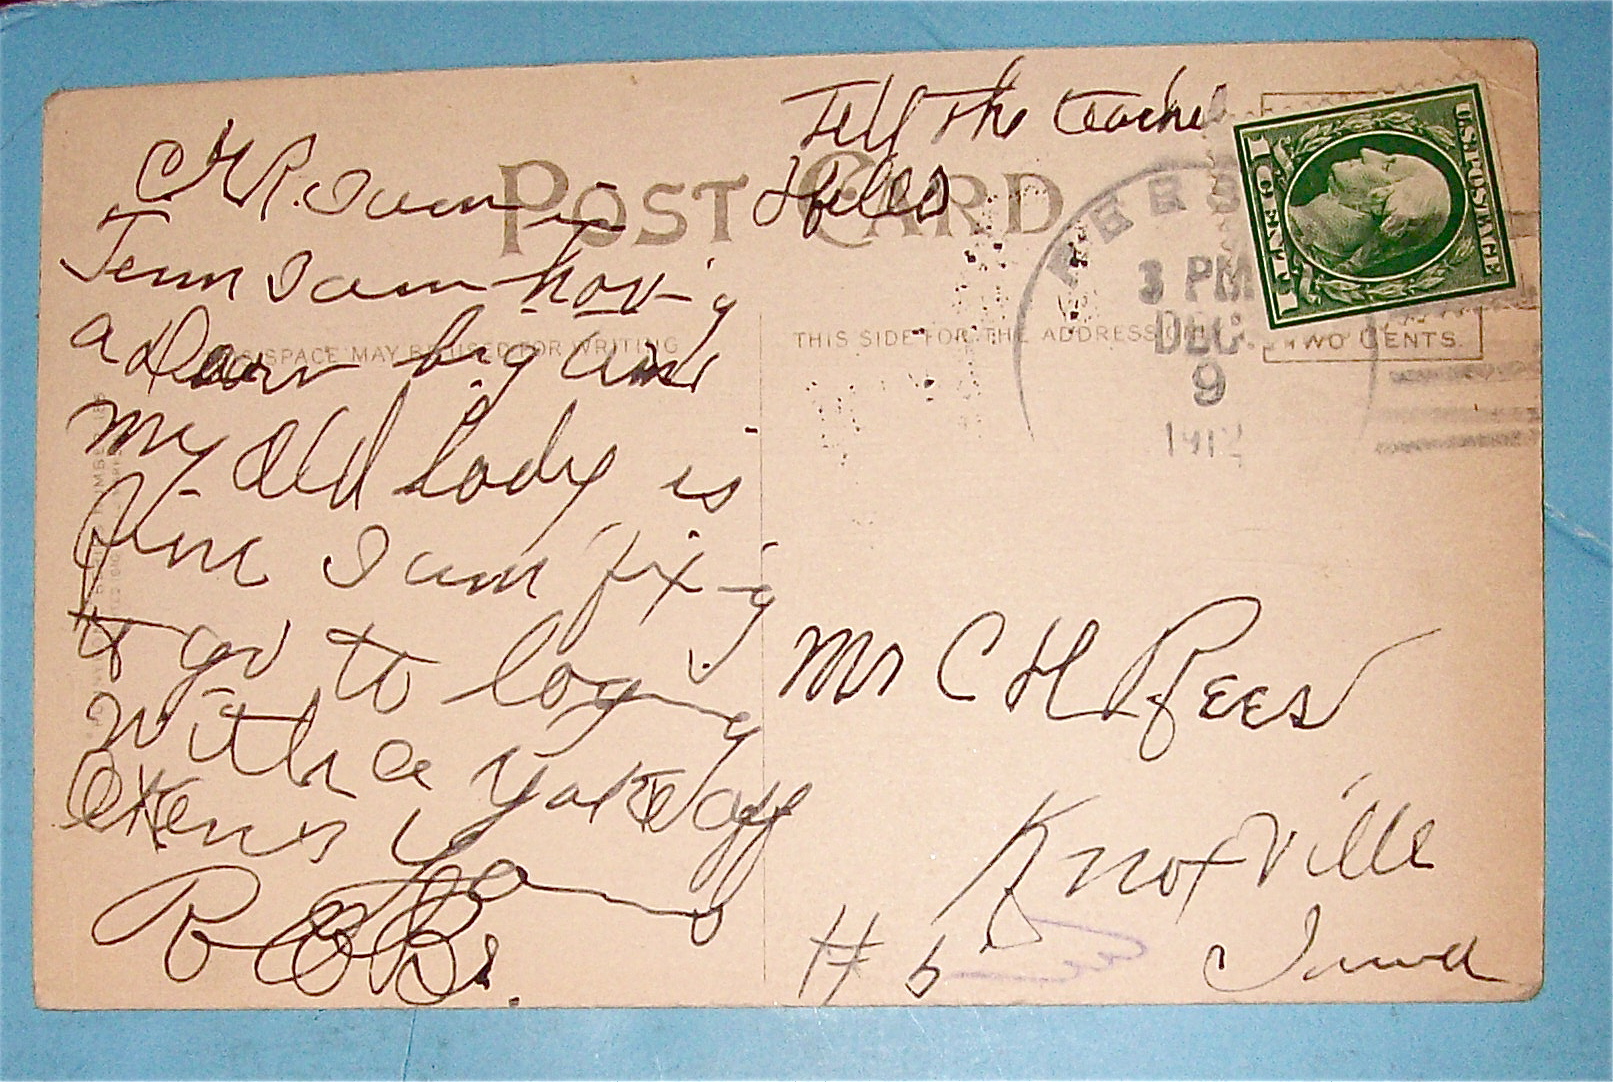 Tell the teacher
Hello
POST CARD
C H R. I am in
Tenn I am hav-ig
a big time
my old lady is
fine I am fix-ig
to go to loging
with a yoke off
oxens yo
R E B.
THIS SPACE MAY BE USED FOR WRITING
THIS SIDE FOR THE ADDRESS
U.S. POSTAGE
1 CENT 1
TWO CENTS.
3 PM
DEC
9
1912
Mr C H Rees
Knoxville
# 5
Iowa